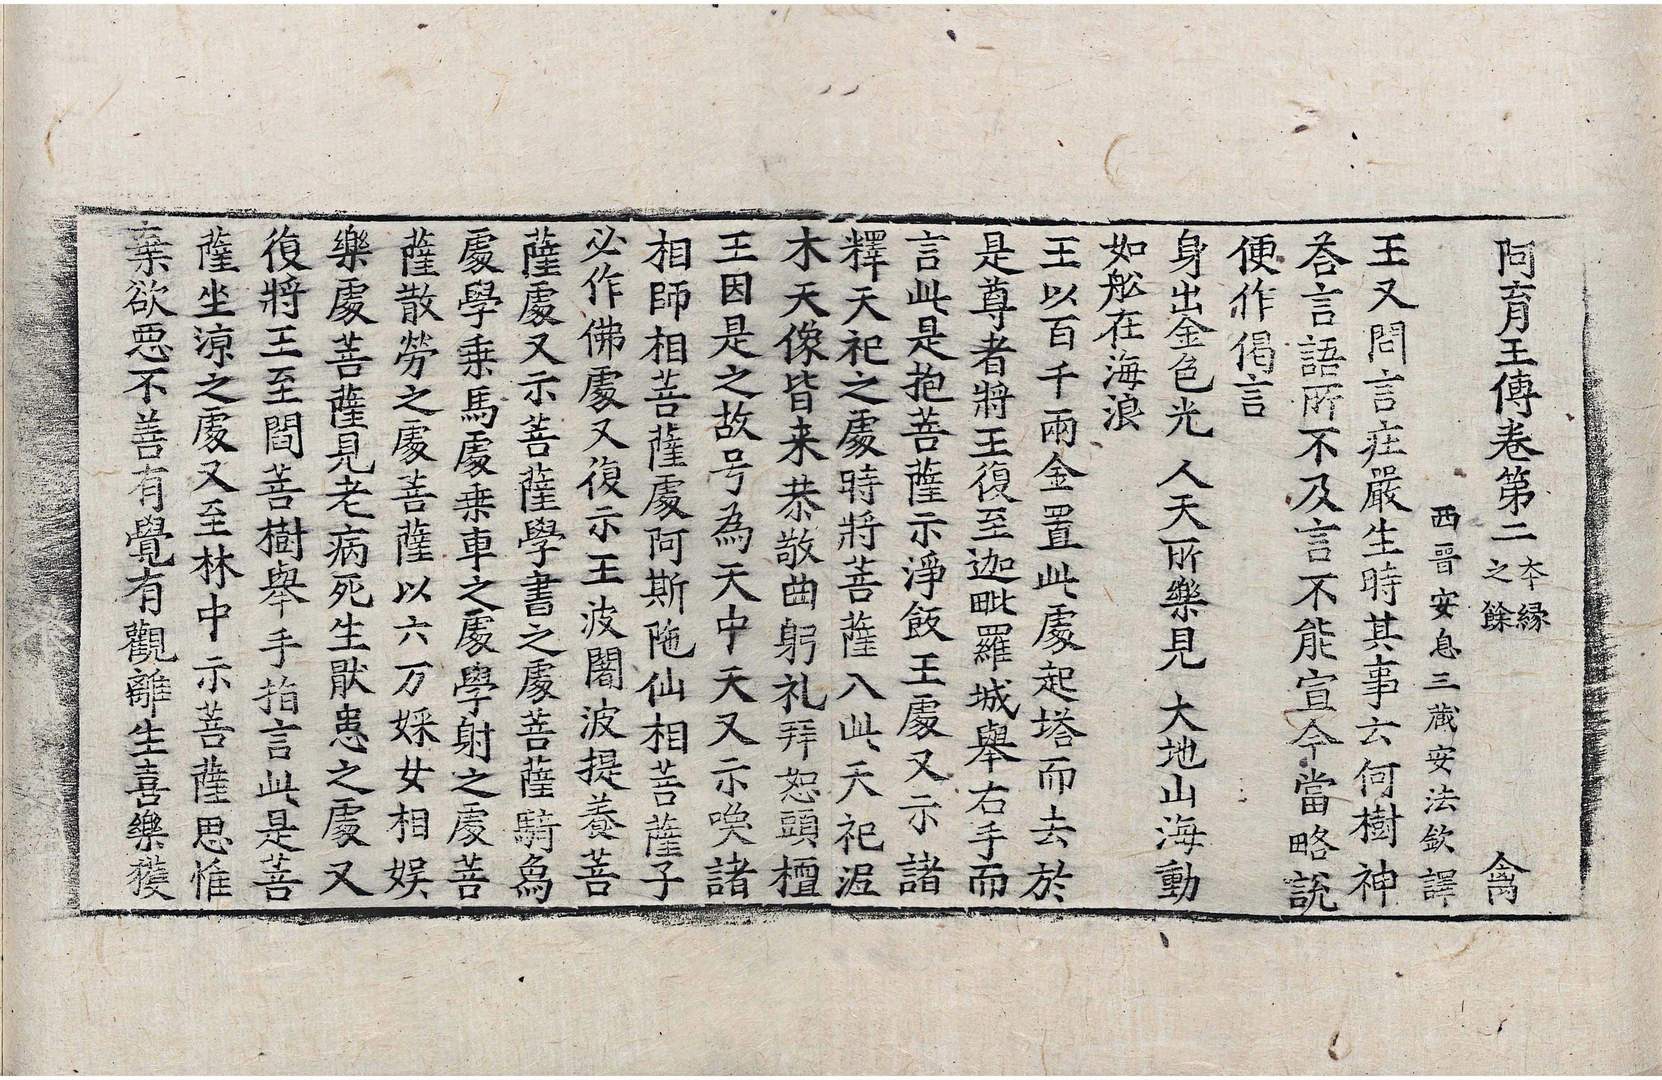 阿育王傳卷第二 夲縁之餘 禽
西晋安息三藏安法欽譯
王又問言庄嚴生時其事云何樹神
荅言語所不及言不能宣今當略説
便作偈言
身出金色光 人天所樂見 大地山海動
如舩在海浪
王以百千兩金置此處起塔而去於
是尊者將王復至迦毗羅城舉右手而
言此是抱菩薩示淨飯王處又示諸
釋天祀之處時將菩薩入此天祀渥
木天像皆来恭敬曲躬礼拜恕頭檀
王因是之故号為天中天又示喚諸
相師相菩薩處阿斯陁仙相菩薩子
必作佛處又復示王波闍波提養菩
薩處又示菩薩學書之處菩薩騎為
處學乗馬處乗車之處學射之處菩
薩散勞之處菩薩以六万婇女相娱
樂處菩薩見老病死生猒患之處又
復將王至閻菩樹舉手指言此是菩
薩坐凉之處又至林中示菩薩思惟
棄欲惡不善有覺有觀離生喜樂獲